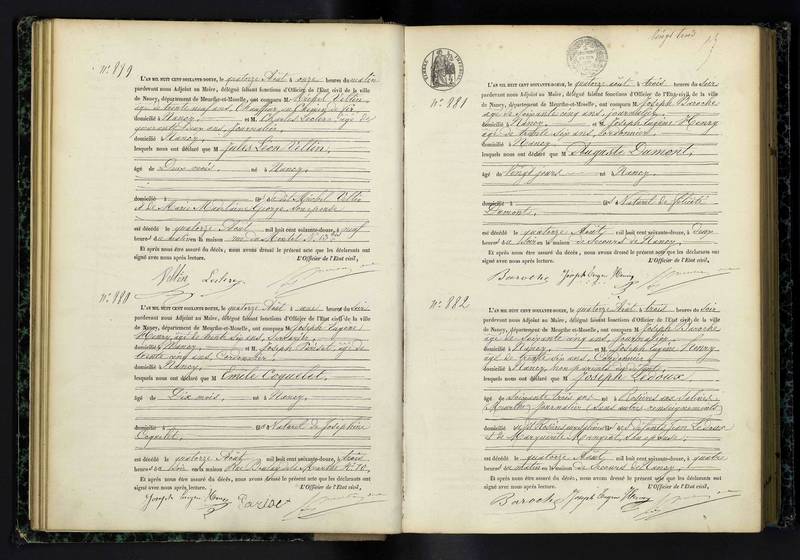 N° 879
L'AN MIL HUIT CENT SOIXANTE-DOUZE, le quatorze Août à onze heures du matin
pardevant nous Adjoint au Maire, délégué faisant fonctions d'Officier de l'Etat civil de la ville
de Nancy, département de Meurthe-et-Moselle, ont comparu M. Michel Vellin
âgé de trente neuf ans, Chauffeur au Chemin de fer
domicilié à Nancy et M. Charles Leclerc âgé de
quarante deux ans, journalier,
domicilié à Nancy
lesquels nous ont déclaré que M Jules Léon Vellin,
âgé de Deux mois né à Nancy,
domicilié à fils de dit Michel Vellin
et de Marie Madelaine George, son épouse
est décédé le quatorze Août mil huit cent soixante-douze, à neuf
heures du matin en la maison
Et après nous être assuré du décès, nous avons dressé le présent acte que les déclarants ont
signé avec nous après lecture. L'Officier de l'Etat civil,
Vellin Leclerc
N° 880
L'AN MIL HUIT CENT SOIXANTE-DOUZE, le quatorze Août à une heure du soir
pardevant nous Adjoint au Maire, délégué faisant fonctions d'Officier de l'Etat civil de la ville
de Nancy, département de Meurthe-et-Moselle, ont comparu M. Joseph Eugène
Henry, âgé de trente six ans,
domicilié à Nancy, et M. Joseph âgé de
trente cinq ans, Cordonnier
domicilié à Nancy
lesquels nous ont déclaré que M Emile Coquelet,
âgé de Dix mois, né à Nancy,
domicilié à fils Naturel de Joséphine
Coquelet,
est décédé le quatorze Août mil huit cent soixante-douze, à trois
heures du en la maison Rue
Et après nous être assuré du décès, nous avons dressé le présent acte que les déclarants ont
signé avec nous après lecture. L'Officier de l'Etat civil,
Joseph Eugène Henry
Vingt trois
N° 881
L'AN MIL HUIT CENT SOIXANTE-DOUZE, le quatorze août à trois heures du soir
pardevant nous Adjoint au Maire, délégué faisant fonctions d'Officier de l'Etat civil de la ville
de Nancy, département de Meurthe-et-Moselle, ont comparu M. Joseph Baroche
âgé de soixante cinq ans, journalier,
domicilié à Nancy et M. Joseph Eugène Henry
âgé de trente six ans, Cordonnier
domicilié à Nancy
lesquels nous ont déclaré que M Auguste Dumont,
âgé de Vingt jours né à Nancy,
domicilié à fils Naturel de Félicité
Dumont,
est décédé le quatorze Août mil huit cent soixante-douze, à deux
heures du soir en la maison de Secours de Nancy,
Et après nous être assuré du décès, nous avons dressé le présent acte que les déclarants ont
signé avec nous après lecture. L'Officier de l'Etat civil,
Baroche Joseph Eugène Henry
N° 882
L'AN MIL HUIT CENT SOIXANTE-DOUZE, le quatorze Août à trois heures du soir
pardevant nous Adjoint au Maire, délégué faisant fonctions d'Officier de l'Etat civil de la ville
de Nancy, département de Meurthe-et-Moselle, ont comparu M. Joseph Baroche
âgé de soixante cinq ans, journalier
domicilié à Nancy et M. Joseph Eugène Henry
âgé de trente six ans, Cordonnier
domicilié à Nancy, non parents du défunt,
lesquels nous ont déclaré que M Joseph Ledoux,
âgé de soixante trois ans né à Rosières aux Salines
Meurthe journalier (Sans autres renseignements)
domicilié à Rosières aux Salines fils de défunts Jean Ledoux
et de Marguerite son épouse;
est décédé le quatorze Août mil huit cent soixante-douze, à quatre
heures du matin en la maison de Secours de Nancy,
Et après nous être assuré du décès, nous avons dressé le présent acte que les déclarants ont
signé avec nous après lecture. L'Officier de l'Etat civil,
Baroche Joseph Eugène Henry